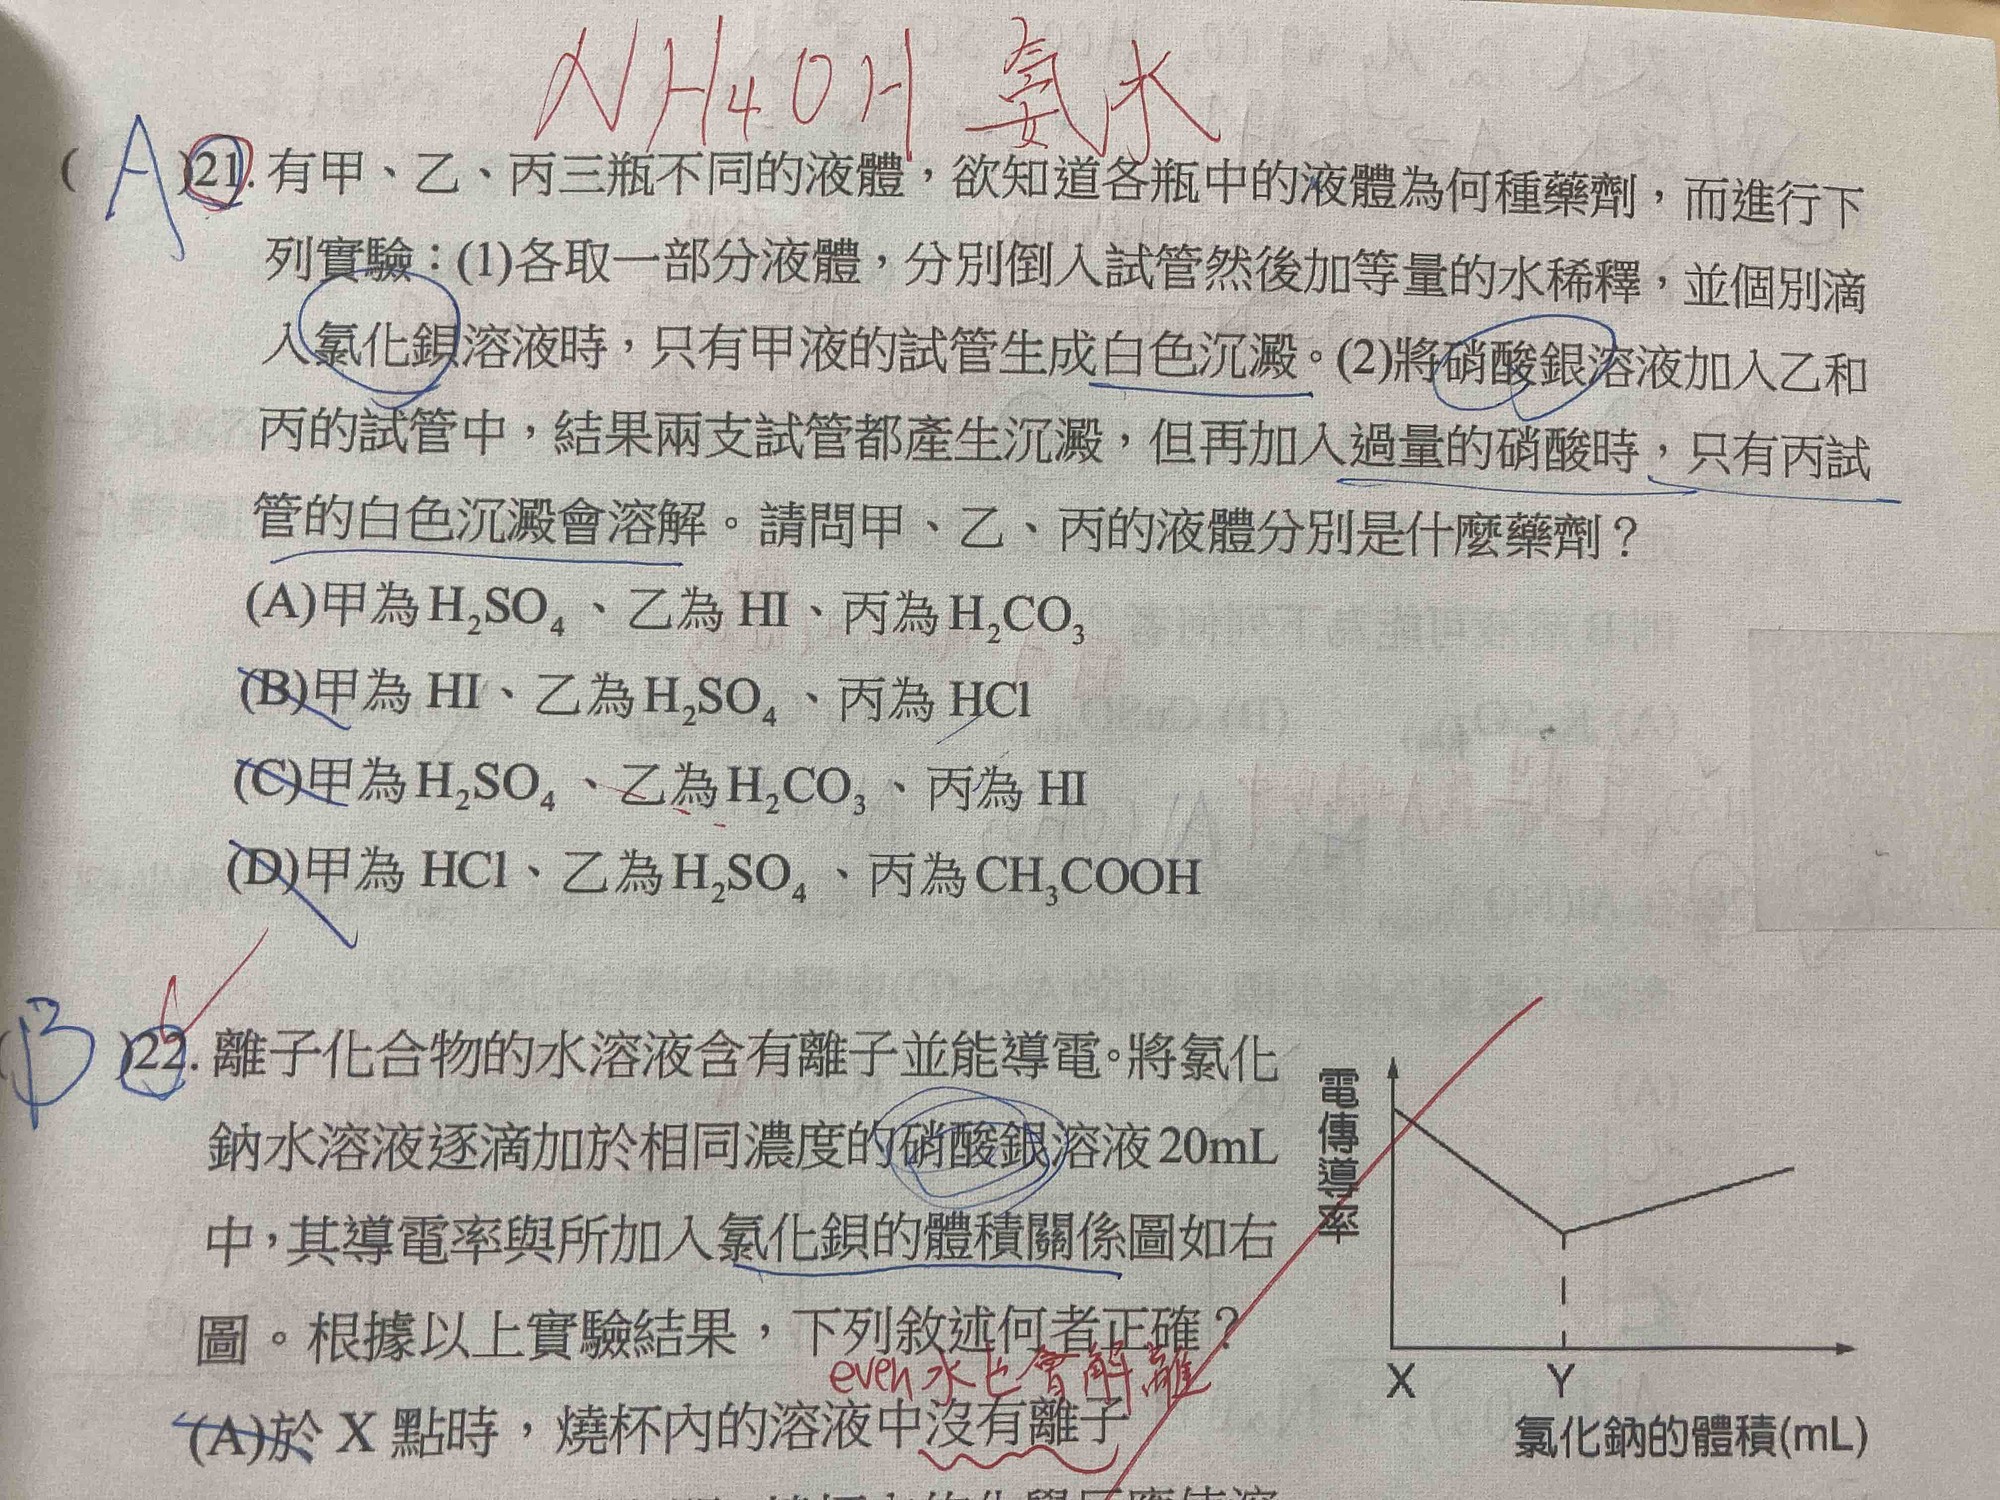 NH4OH 氨水
( A )21. 有甲、乙、丙三瓶不同的液體，欲知道各瓶中的液體為何種藥劑，而進行下
列實驗：(1)各取一部分液體，分別倒入試管然後加等量的水稀釋，並個別滴
入氯化鋇溶液時，只有甲液的試管生成白色沉澱。(2)將硝酸銀溶液加入乙和
丙的試管中，結果兩支試管都產生沉澱，但再加入過量的硝酸時，只有丙試
管的白色沉澱會溶解。請問甲、乙、丙的液體分別是什麼藥劑？
(A)甲為H₂SO₄、乙為 HI、丙為H₂CO₃
(B)甲為 HI、乙為H₂SO₄、丙為 HCl
(C)甲為H₂SO₄、乙為H₂CO₃、丙為 HI
(D)甲為 HCl、乙為H₂SO₄、丙為CH₃COOH
( B )22. 離子化合物的水溶液含有離子並能導電。將氯化
鈉水溶液逐滴加於相同濃度的硝酸銀溶液20mL
中，其導電率與所加入氯化鋇的體積關係圖如右
圖。根據以上實驗結果，下列敘述何者正確？
even 水也會解離
(A)於 X 點時，燒杯內的溶液中沒有離子
電傳導率
X Y
氯化鈉的體積(mL)